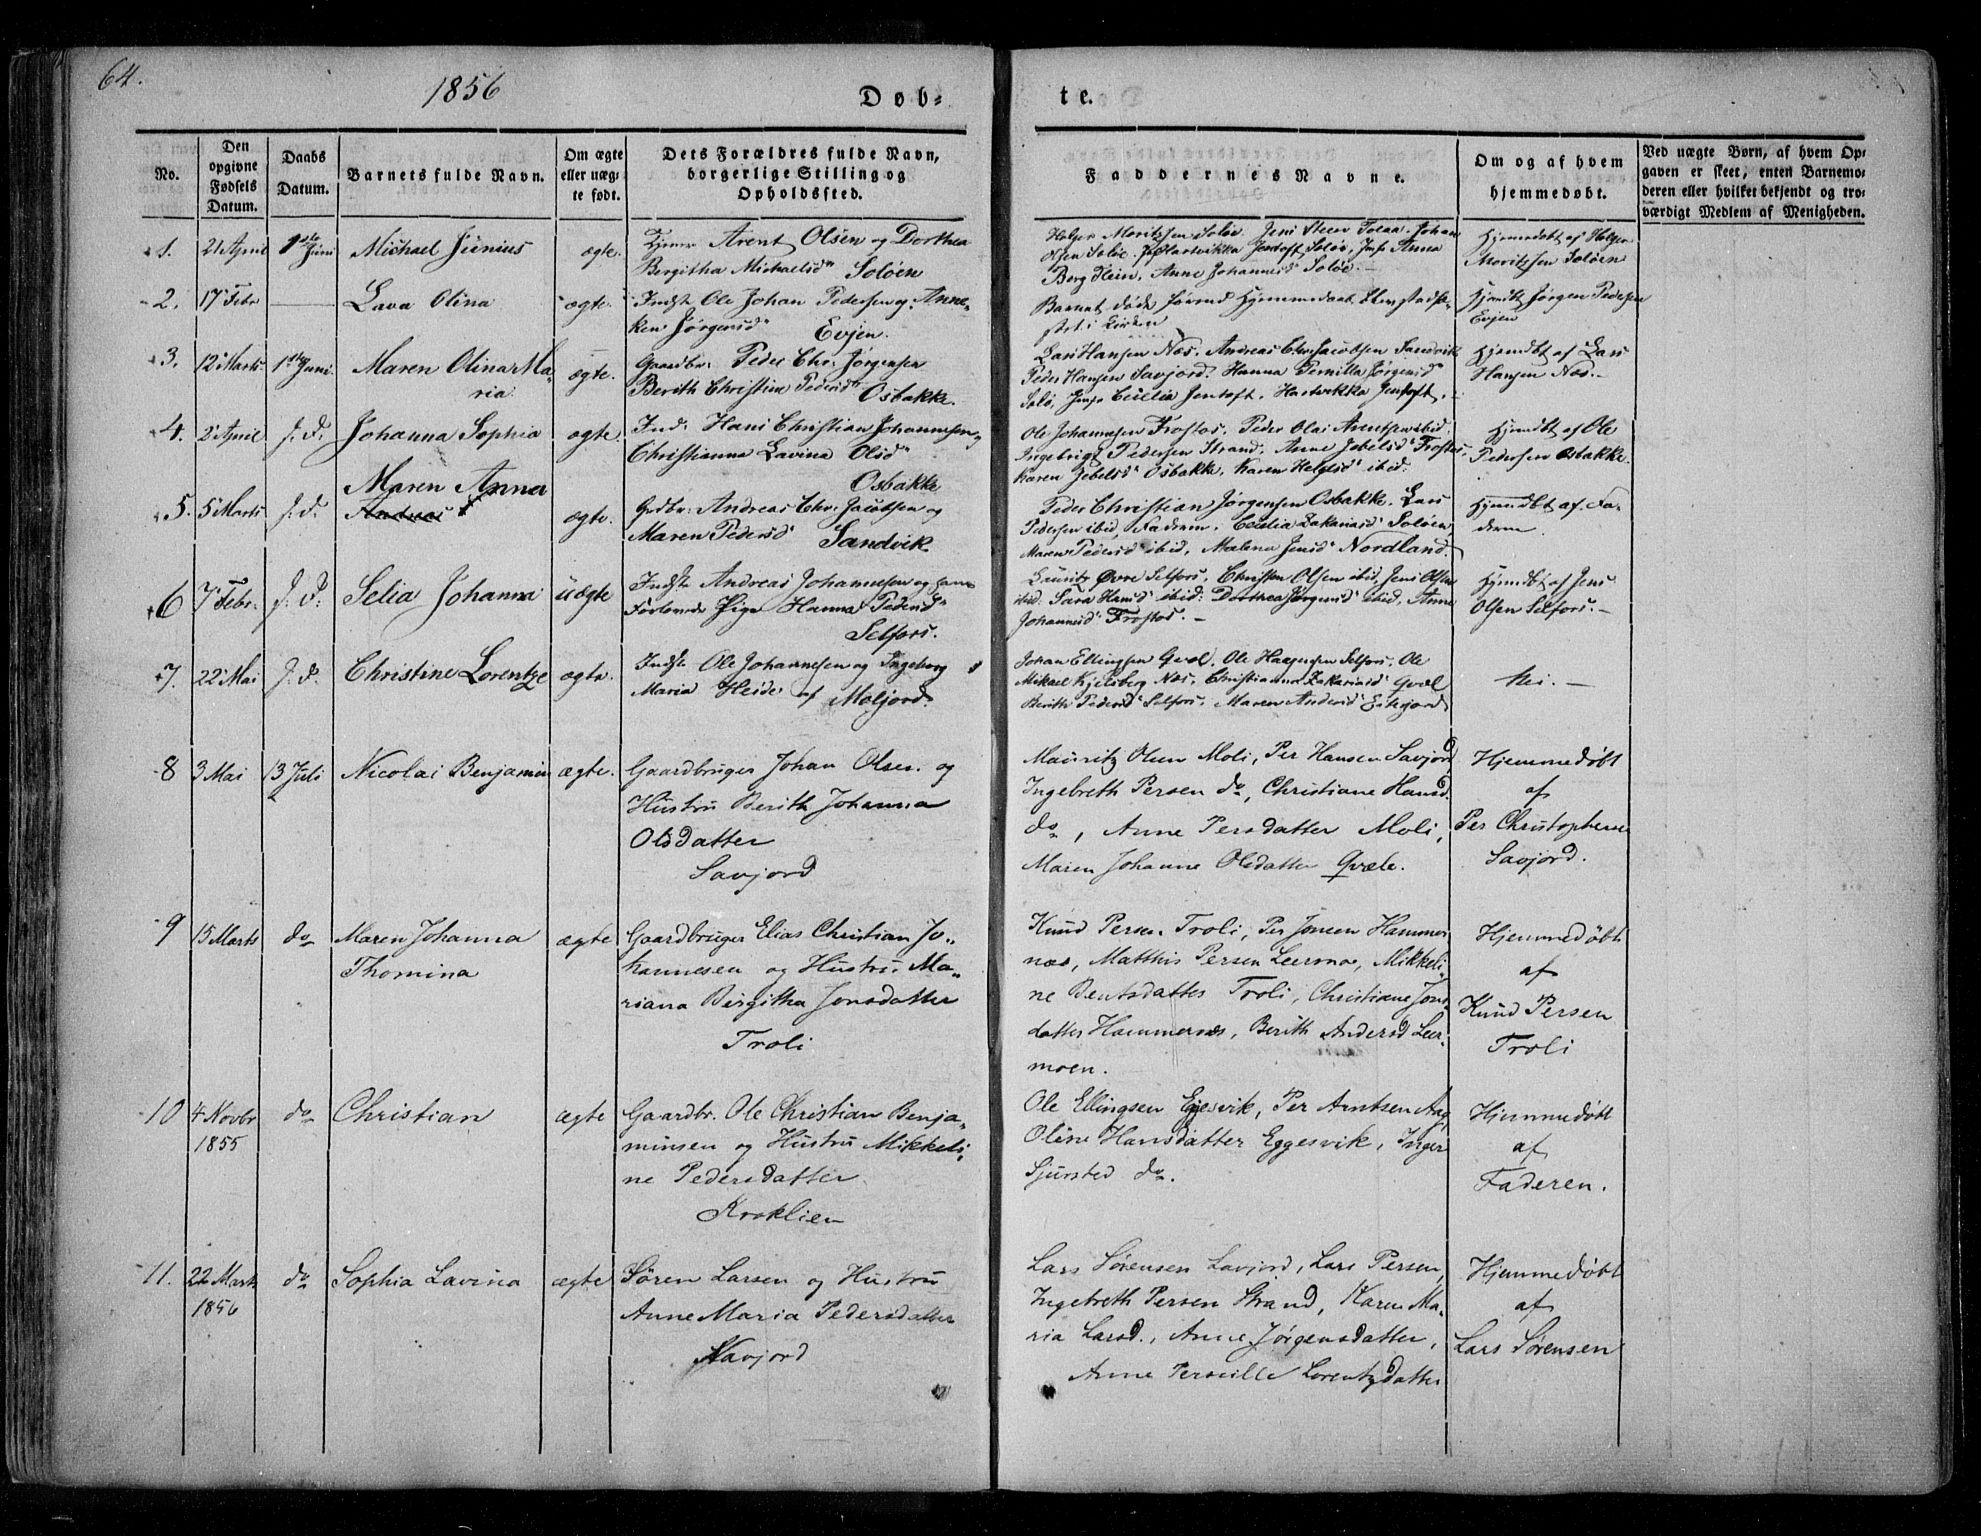 64.
1856
Døb-
te.
No.
Den opgivne Fødsels Datum.
Daabs Datum.
Barnets fulde Navn.
Om ægte eller uægte født.
Dets Forældres fulde Navn, borgerlige Stilling og Opholdssted.
Faddernes Navne.
Om og af hvem hjemmedøbt.
Ved uægte Børn, af hvem Opgaven er skeet, enten Barnemoderen eller hvilket bekjendt og troværdigt Medlem af Menigheden.
1. 21 April 1ste Juni Michael Junius ægte. Arent Olsen og Dorthea
Bergitha Michaelsd Soløen
Holger Moritssen Soløe. Jens Steen Johan
Olsen Soløe, Hartvikka Jentoft Soløe, Jmfr Anna
Borg Anne Johannesd Soløe.
Hjemdøbt af Holger
Moritzsen Soløen
2. 17 Febr Lava Olina ægte. Indst Ole Johan Pedersen og Anne-
ken Jørgensd Evjen.
Barnet døde
i Kirken
Hjemdt Jørgen Pedersen
Evjen
3. 12 Marts 1ste Juni Maren Olina Ma-
ria. ægte. Gaardbr. Peder Chr. Jørgensen
Berith Christina Pedersd Osbakke.
Lars Hansen Næs. Andreas Chr. Jacobsen Sandvik
Peder Hansen Savjord. Hanna Pernilla Jørgensd
Solø, Jmfr Cecilia Jentoft. Hartvikka Jentoft.
Hjemdbt af Lars
Hansen Næs.
4. 2 April J. D. Johanna Sophia ægte. Ind. Hans Christian Johannesen og
Christianna Lavina Olsd
Osbakke
Ole Johannesen Frostos. Peder Olai Arentsen ibid.
Ingebrigt Pedersen Strand. Anne Jebelsd Frostos.
Karen Jebelsd Osbakke. Karen Helgesd ibid.
Hjemdbt af Ole
Pedersen Osbakke.
5. 5 Marts J. D. Maren Anna
Andreas
ægte. Grdbr. Andreas Chr. Jacobsen og
Maren Pedersd Sandvik
Peder Christian Jørgensen Osbakke. Lars
Pedersen ibid, Faderen. Cecilia Zakariasd Soløen,
Maren Pedersd ibid, Malena Jensd Nordland.
Hjemdbt af Fa-
deren
6 7 Febr. J. D. Selia Johanna uægte Indste Andreas Johannesen og
Forlovede Pige Hanna Pedersd
Selfors.
Lauritz Øvre Selfors. Christen Olsen ibid, Jens Olsen
ibid. Sara Hansd ibid: Dorthea Jørgensd ibid, Anne
Johannesd Frostos.
Hjemdbt af Jens
Olsen Selfors.
7. 22 Mai J. D. Christine Lorentze ægte. Indste Ole Johannesen og Ingeborg
Maria Heide af Moljord.
Johan Ellingsen Qvæl. Ole Haagensen Selfors. Ole
Mikael Kjelsberg Næs, Christianna Zakariasd Qvæl
Berith Pedersd Selfors. Maren Andersd
Nei.
8 3 Mai 13 Juli Nicolai Benjamin ægte. Gaardbruger Johan Olsen og
Hustru Berith Johanna
Olsdatter
Savjord
Mauritz Olsen Moli, Per Hansen Savjord,
Ingebreth Persen do, Christiane Hansd.
do, Anne Persdatter Moli,
Maren Johanne Olsdatter Qvæle.
Hjemmedøbt
af
Per Christophersen
Savjord.
9 15 Marts do Maren Johanna
Thomina
ægte Gaardbruger Elias Christian Jo-
hannesen og Hustru Ma-
riana Birgitha Jonsdatter
Troli
Knud Persen Troli, Per Jonsen Hammer-
næs, Matthis Persen Leermoe, Mikkeli-
ne Bentsdatter Troli, Christiane Jons-
datter Hammernæs, Berith Andersd Leer-
moen.
Hjemmedøbt
af
Knud Persen
Troli
10 4 Novbr
1855
do Christian ægte Gaardbr. Ole Christian Benja-
minsen og Hustru Mikkeli-
ne Pedersdatter
Kroklien
Ole Ellingsen Egesvik, Per Arntsen Aag,
Oline Hansdatter Eggesvik, Inger
Sjursted do.
Hjemmedøbt
af
Faderen.
11. 22 Marts
1856
do Sophia Lavina ægte Søren Larsen og Hustru
Anne Maria Pedersdatter
Navjord
Lars Sørensen Lavjord, Lars Persen,
Ingebreth Persen Strand, Karen Ma-
ria Larsd., Anne Jørgensdatter,
Anne Pernille Lorentzdatter
Hjemmedøbt
af
Lars Sørensen